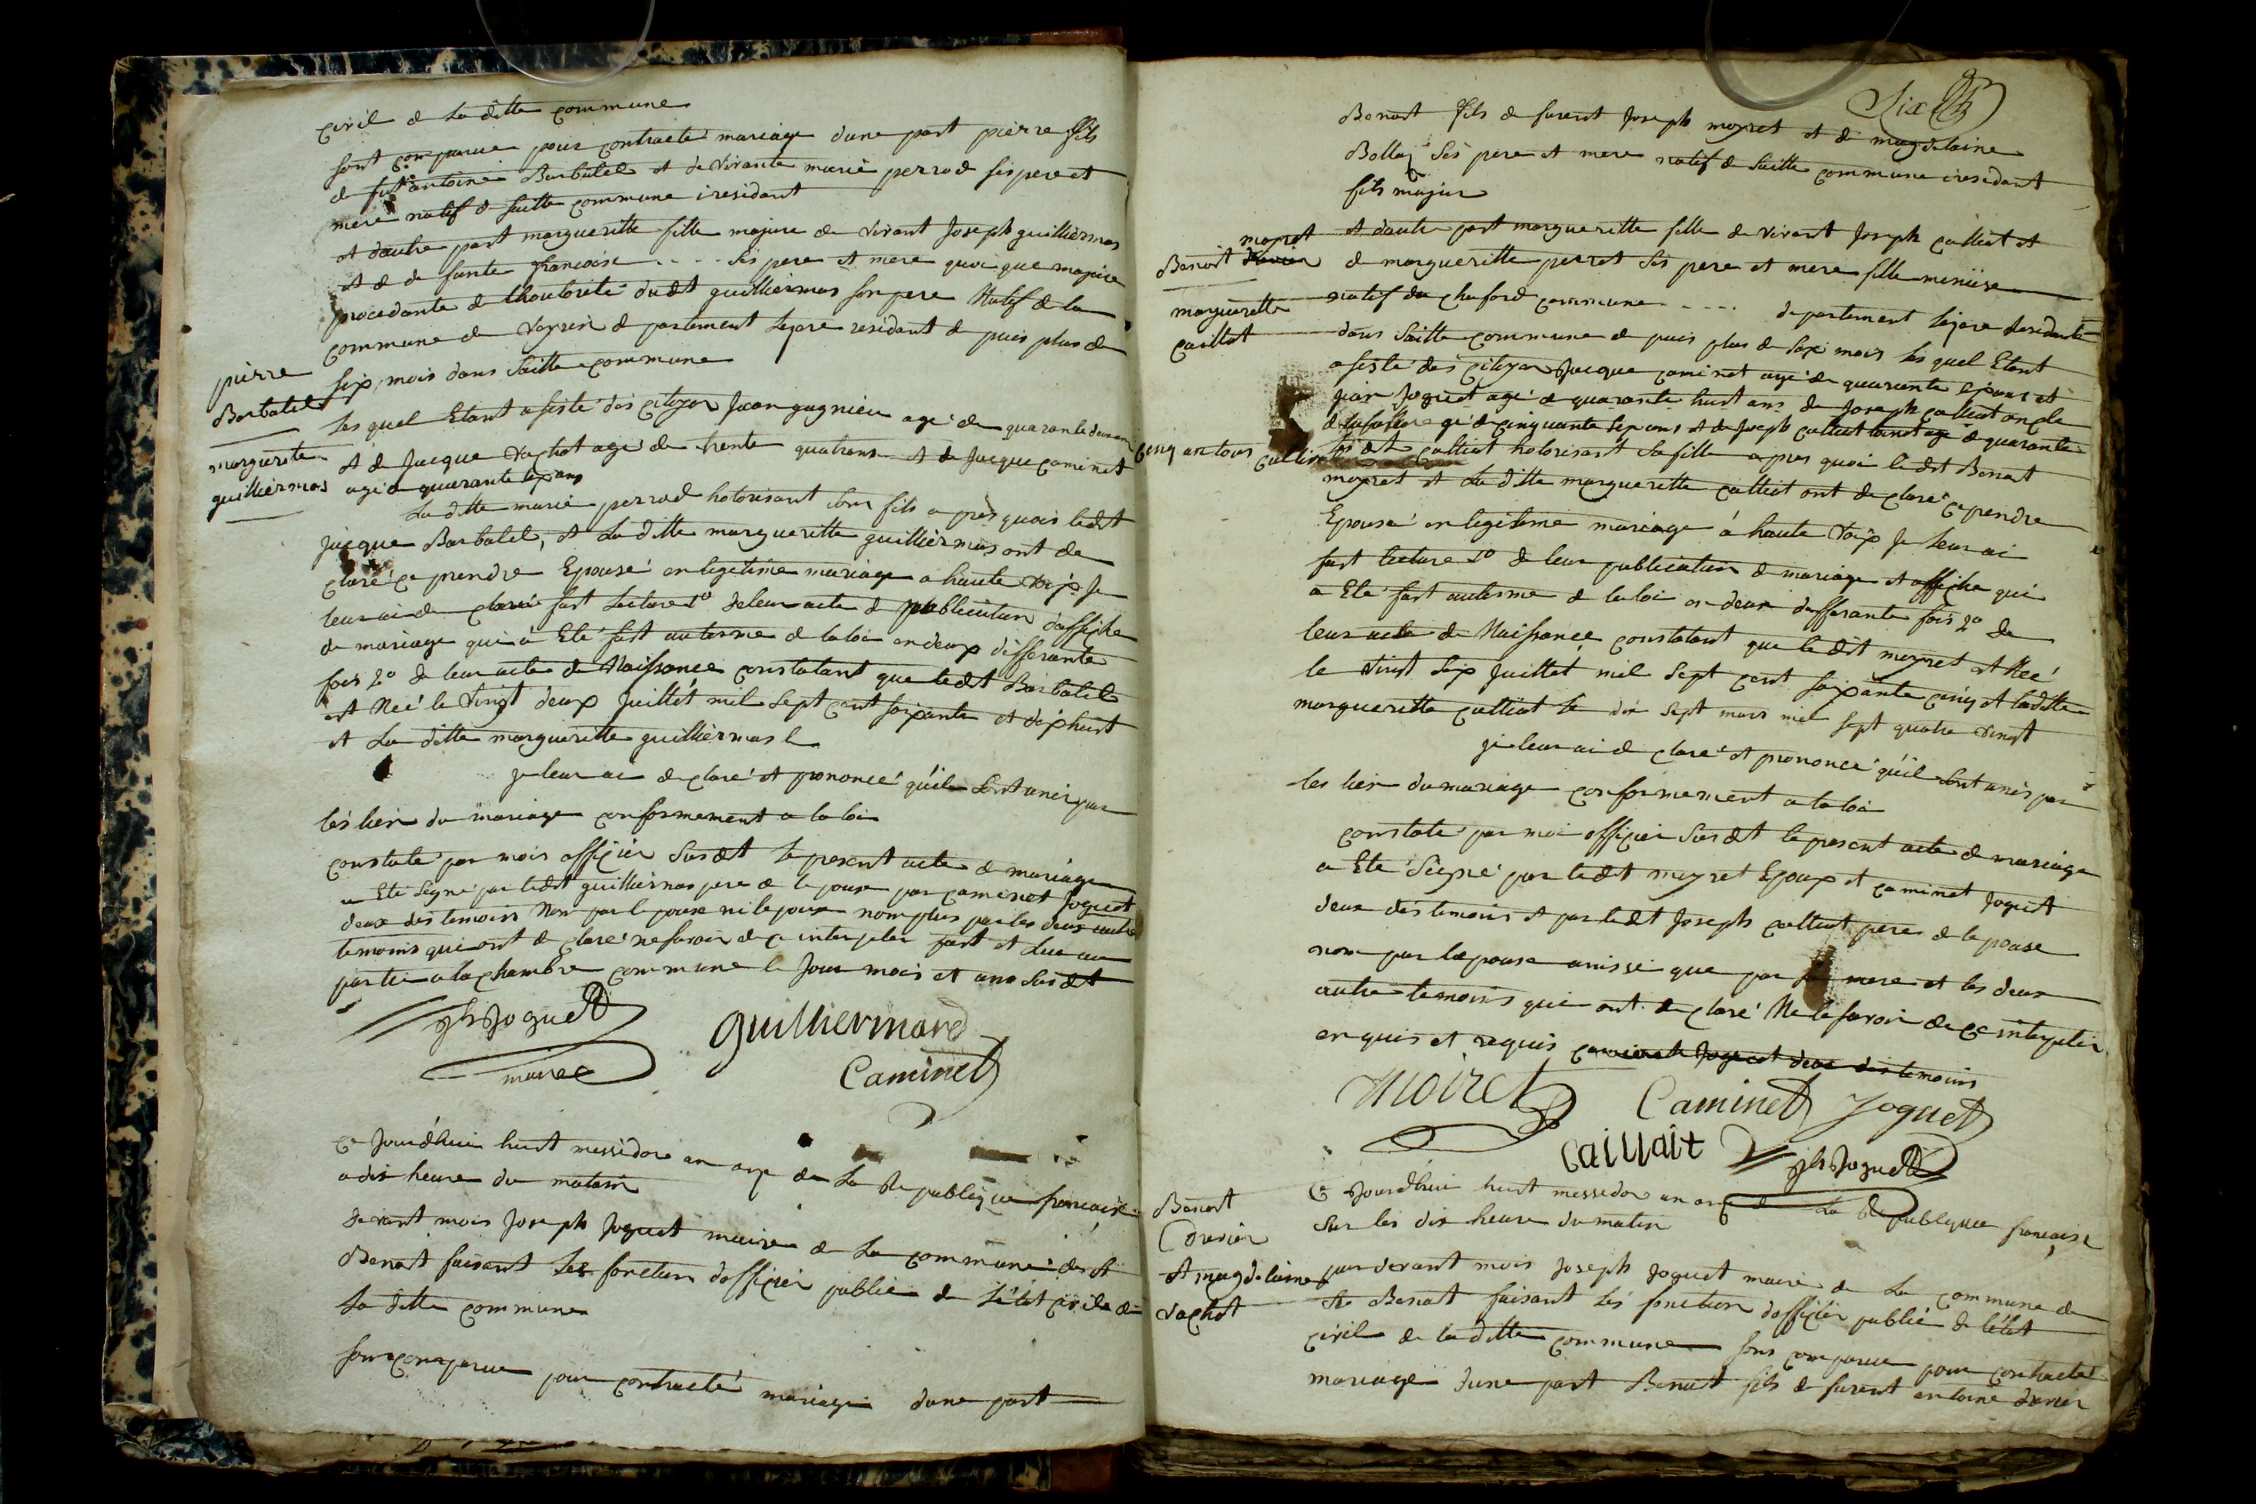 civil de La ditte commune
sont comparue pour contracté mariage dune part pierre fils
de fut antoine Barbalel et de vivante marie perrod ses pere et
mere natif de saitte commune i residant
et dautre part margueritte fille majure de vivant Joseph guilliermas
et de de funte francoise - - - - Ses pere et mere quoi que majure
procedante de lhoutorité dudt guilliermas son pere Natif de la
commune de de partement Lizere residant de puis plus de
pierre
Barbalel
six mois dans saitte commune
margueritte
guilliermas
Les quel Etant asisté des Citoyen Jean gagnieu agé de quarante deux an
et de Jacque vachot agé de trente quatrans et de Jacque caminet
agé de quarante sixans
La ditte marie perrod hotorisant son fils apres quoi ledt
Jacque Barbalel, et La ditte margueritte guilliermas ont de
claré ce prendre Epousé en legetime mariage a haute voix Je
leur ai de claré fait Lecture 1º de leur acte de publication daffiche
de mariage qui à Eté fait auterme de la loi en deux differante
fois 2º de leur acte de Naissance constatant que ledt Barbalel
est Neé le vingt deux Juillet mil sept cent soixante et dixhuit
et La ditte margueritte guilliermas le
je leur ai de claré et prononcé quil sont unis par
les lien du mariage conformement a la loi
constaté par mois officier susdt le present acte de mariage
a Eté Signé par ledt guilliermas pere de le pouse par caminet Joguet
deux des temoins Non par le poux ni le pouse nomplus par les deux autre
temoins qui ont de claré ne savoir de ce interpeler fait et Lue au
partie a la chambre commune le Jour mois et ans susdt
Jh Joguet
maire
guilliermard
Caminet
Ce Jourdhui huit messidore an onze de La Republique francaise
a dix heure du matin
devant mois Joseph Joguet maire de La commune de St
Benoit faisant Les fonction dofficier publié de L'état civile de
La ditte commune
sons comparue pour contracté mariage dune part
Six
Benoit fils de furent Joseph moyret et de magdelaine
Bollaz Ses pere et mere natif de saitte commune i residant
fils majur
moyret
Benoit
margueritte
caillot
et dautre part margueritte fille de vivant Joseph calliat et
de margueritte perret Ses pere et mere fille meniure
natif de commune - - - - departement Lizere
dans saitte commune de puis plus de six mois les quel Etant
asisté des Citoyen Jacque caminet agé de quarante et
Joguet agé de quarante huit ans de Joseph calliat oncle
gé de cinquante six ans et de Joseph calliat agé de quarante
cinq an tous
ledt calliat hotorisant sa fille apres quoi le dt Benoit
moyret et La ditte margueritte calliat ont de claré ce prendre
Epousé en legitime mariage à haute voix Je leur ai
fait lecture 1º de leur publication de mariage et affiche qui
a Eté fait auterme de la loi en deux differante fois 2º de
leur acte de Naissance constatant que le dit moyret et Neé
le vinst six Juillet mil sept cent soixante cinq et laditte
margueritte calliat le dix sept mars mil sept quatre vinst
je leur ai de claré et prononcé quil sont unis par
les lien du mariage conformement a la loi
constaté par moi officier susdt le present acte de mariage
a Eté Signé par ledt moyret Epoux et caminet Joguet
deux des temoins et par ledt Joseph calliat pere de le pouse
nom par le pouse anissi que par sa mere et les deux
autre temoins qui ont de claré Ne le savoir de ce interpeler
enquis et requis caminet Joguet deux des temoins
Moiret
Caminet
Joguet
caillait
Jh Joguet
Benoit
et magdelaine
vachot
Ce Jourdhui huit messidor an onze de La Republique francaise
sur les dix heure du matin
par devant mois Joseph Joguet maire de La commune de
St Benoit faisant les fonction dofficier publié de létat
civil de la ditte commune sons comparue pour contracté
mariage dune part Benoit fils de furent antoine